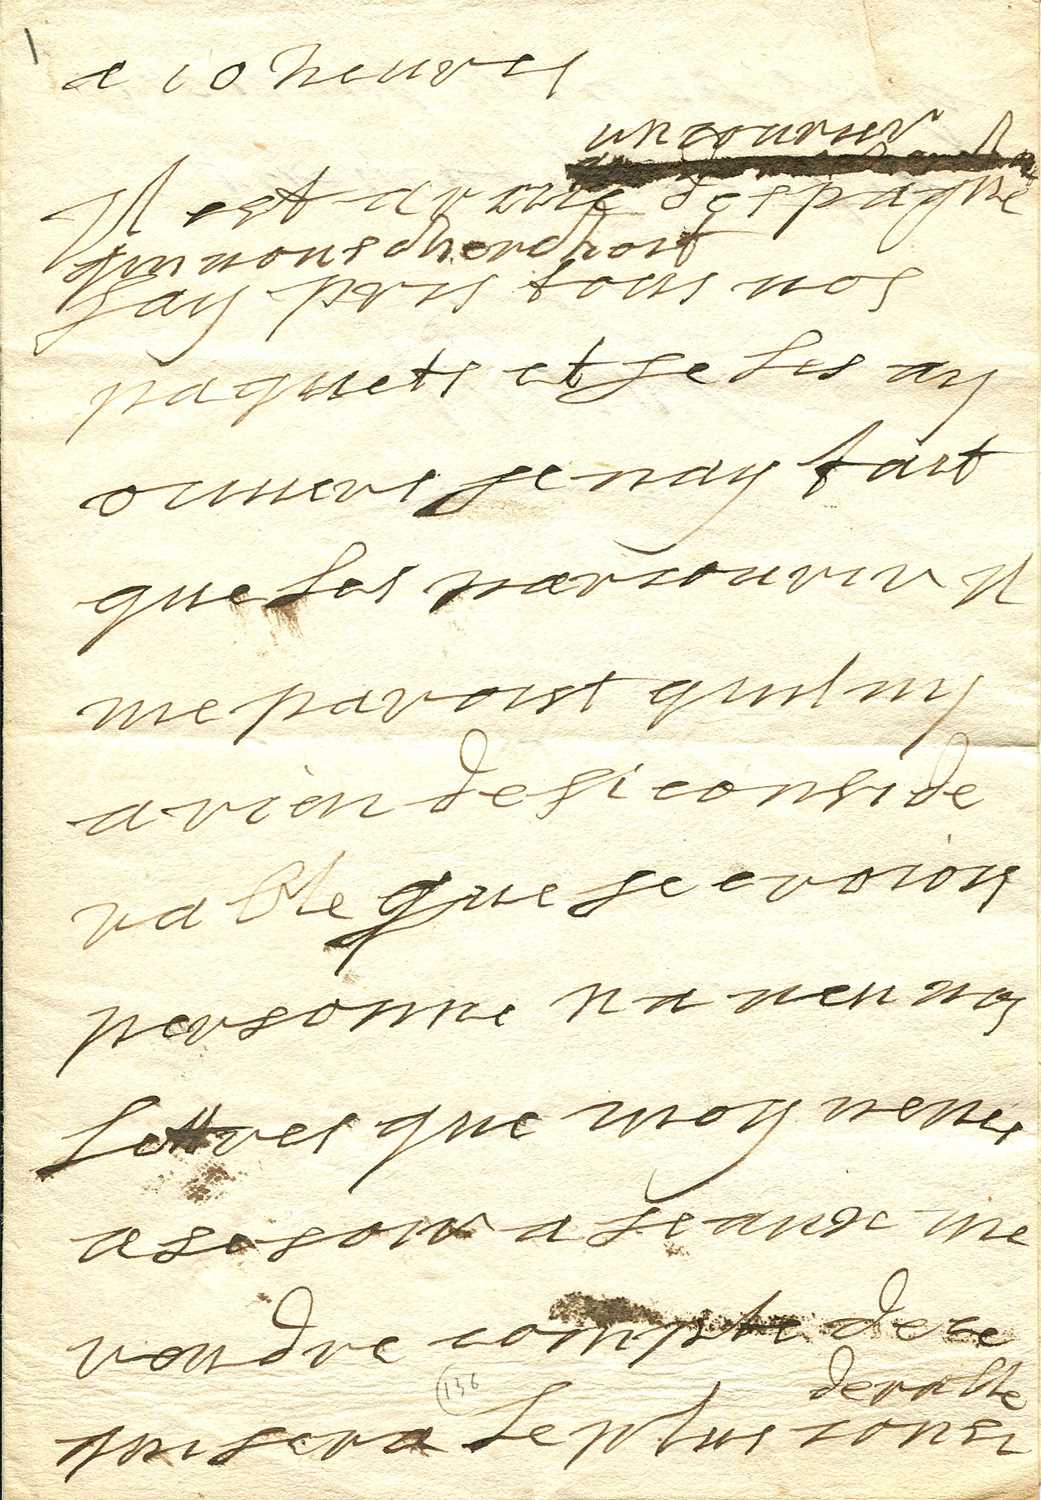 1
a 10 heures
un courier
Il est arrivé despagne
qui nous cherchoit
Jay pris tous nos
paquets et je les ay
ouuers je nay fait
que les parcourir Il
me paroist quil ny
a rien de si conside
rable que je croiois
personne na veu nos
lettres que moy venes
a se soir a sceaux me
rendre compte de ce
derable
qui sera le plus consi
136